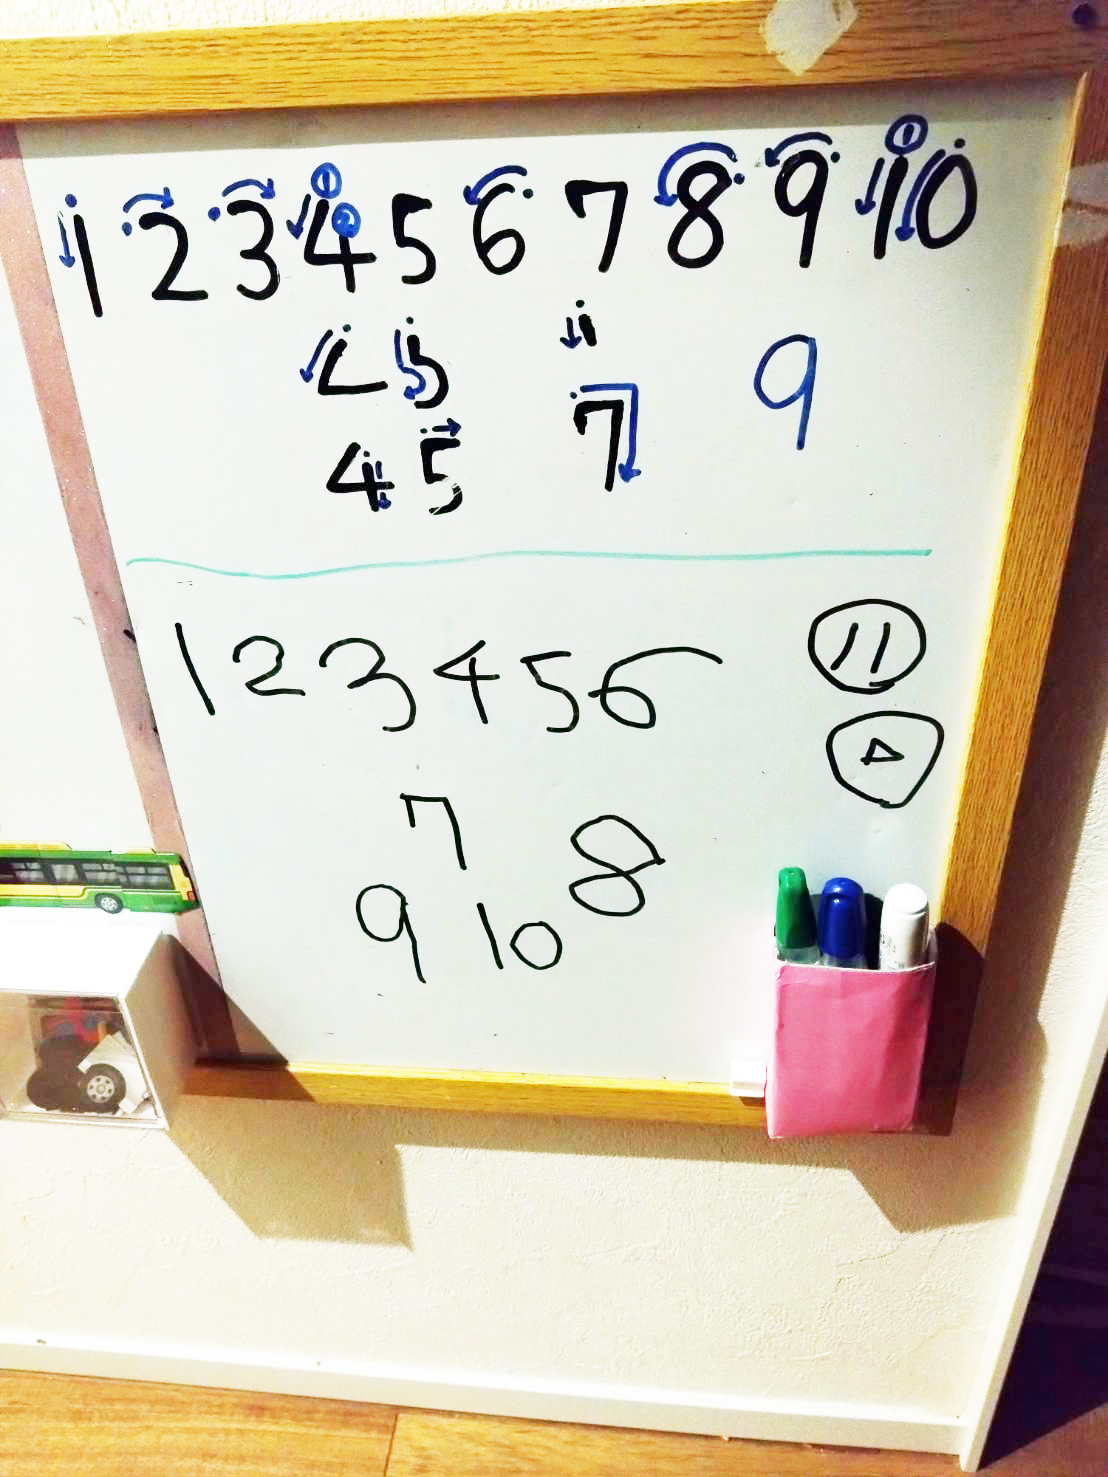 1 2 3 4 5 6 7 8 9 10
① ② ①
9
4 5 7
1 2 3 4 5 6
11
7
8
9 10